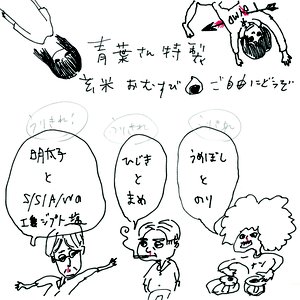 青葉さん特製
玄米 おむすび ご自由にどうぞ
うりきれ!
うりきれ
うりきれ
明太子
と
S/S/A/Wの
エジプト塩
ひじき
と
まめ
うめぼし
と
のり